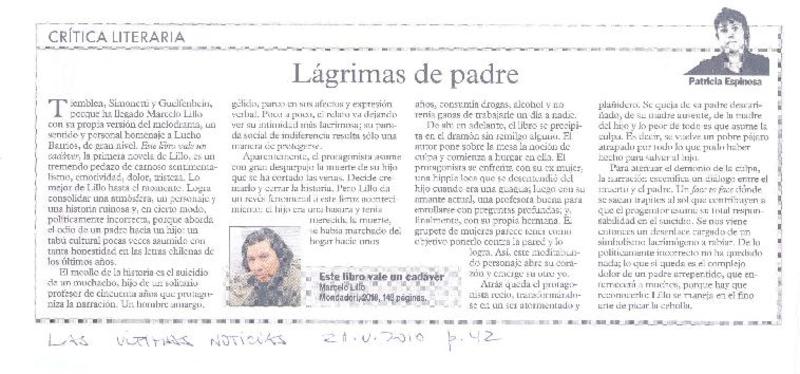 CRÍTICA LITERARIA
Patricia Espinosa
Lágrimas de padre
Tiemblen, Simonetti y Guelfenbein,
porque ha llegado Marcelo Lillo
con su propia versión del melodrama, un
sentido y personal homenaje a Lucho
Barrios, de gran nivel. Este libro vale un
cadáver, la primera novela de Lillo, es un
tremendo pedazo de carnoso sentimenta-
lismo, emotividad, dolor, tristeza. Lo
mejor de Lillo hasta el momento. Logra
consolidar una atmósfera, un personaje y
una historia ruinosa y, en cierto modo,
políticamente incorrecta, porque aborda
el odio de un padre hacia un hijo: un
tabú cultural pocas veces asumido con
tanta honestidad en las letras chilenas de
los últimos años.
El meollo de la historia es el suicidio
de un muchacho, hijo de un solitario
profesor de cincuenta años que protago-
niza la narración. Un hombre amargo,
gélido, parco en sus afectos y expresión
verbal. Poco a poco, el relato va dejando
ver su intimidad más lacrimosa; su para-
da social de indiferencia resulta sólo una
manera de protegerse.
Aparentemente, el protagonista asume
con gran desparpajo la muerte de su hijo
que se ha cortado las venas. Decide cre-
marlo y cerrar la historia. Pero Lillo da
un revés fenomenal a este feroz aconteci-
miento: el hijo era una basura y tenía
merecida la muerte,
se había marchado del
hogar hacía unos
años, consumía drogas, alcohol y no
tenía ganas de trabajarle un día a nadie.
De ahí en adelante, el libro se precipi-
ta en el dramón sin remilgo alguno. El
autor pone sobre la mesa la noción de
culpa y comienza a hurgar en ella. El
protagonista se enfrenta con su ex mujer,
una hippie loca que se desentendió del
hijo cuando era una guagua; luego con su
amante actual, una profesora buena para
enrollarse con preguntas profundas; y,
finalmente, con su propia hermana. El
grupete de mujeres parece tener como
objetivo ponerlo contra la pared y lo
logra. Así, este meditabun-
do personaje abre su cora-
zón y emerge su otro yo.
Atrás queda el protago-
nista recio, transformándo-
se en un ser atormentado y
plañidero. Se queja de su padre descari-
ñado, de su madre ausente, de la madre
del hijo y lo peor de todo es que asume la
culpa. Es decir, se vuelve un pobre pájaro
atrapado por todo lo que pudo haber
hecho para salvar al hijo.
Para atenuar el demonio de la culpa,
la narración escenifica un diálogo entre el
muerto y el padre. Un face to face donde
se sacan trapitos al sol que contribuyen a
que el progenitor asuma su total respon-
sabilidad en el suicidio. Se nos viene
entonces un desenlace cargado de un
simbolismo lacrimógeno a rabiar. De lo
políticamente incorrecto no ha quedado
nada; lo que sí queda es el complejo
dolor de un padre arrepentido, que en-
ternecerá a muchos, porque hay que
reconocerlo: Lillo se maneja en el fino
arte de picar la cebolla.
Este libro vale un cadáver
Marcelo Lillo
Mondadori, 149 páginas.
LAS ÚLTIMAS NOTICIAS 2010 p. 42